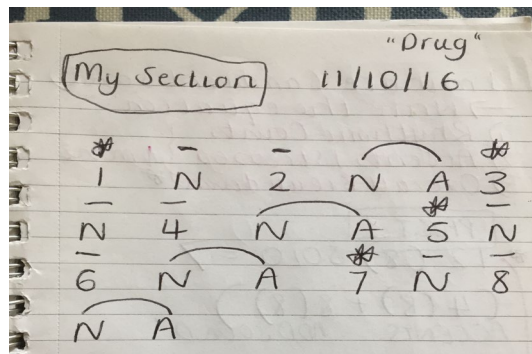 "Drug"
My Section 11/10/16
* - - *
1 N 2 N A 3
- - * -
N 4 N A 5 N
- * - -
6 N A 7 N 8
N A